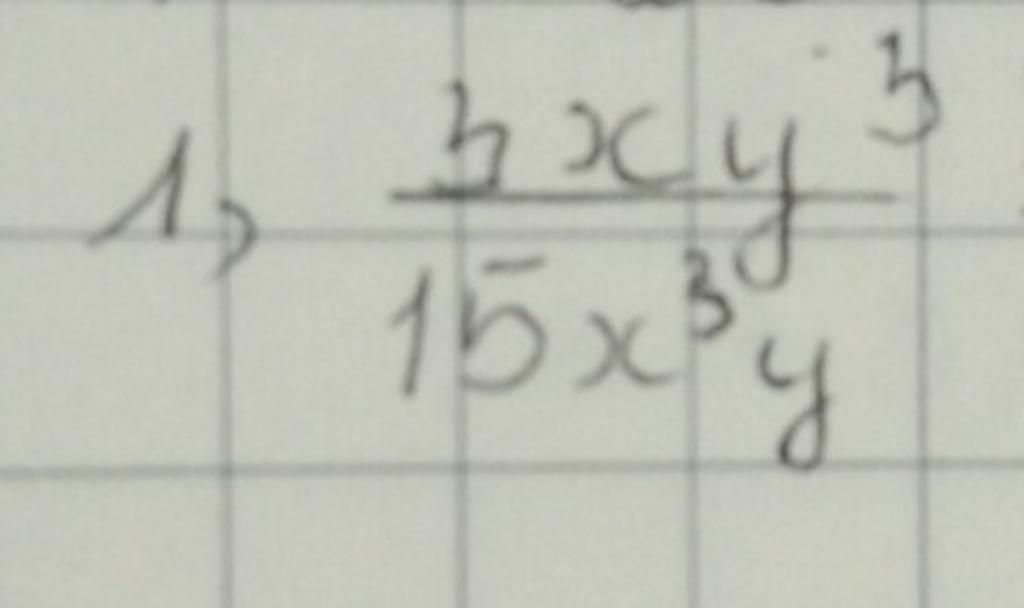 1, \frac{3xy^3}{15x^3y}